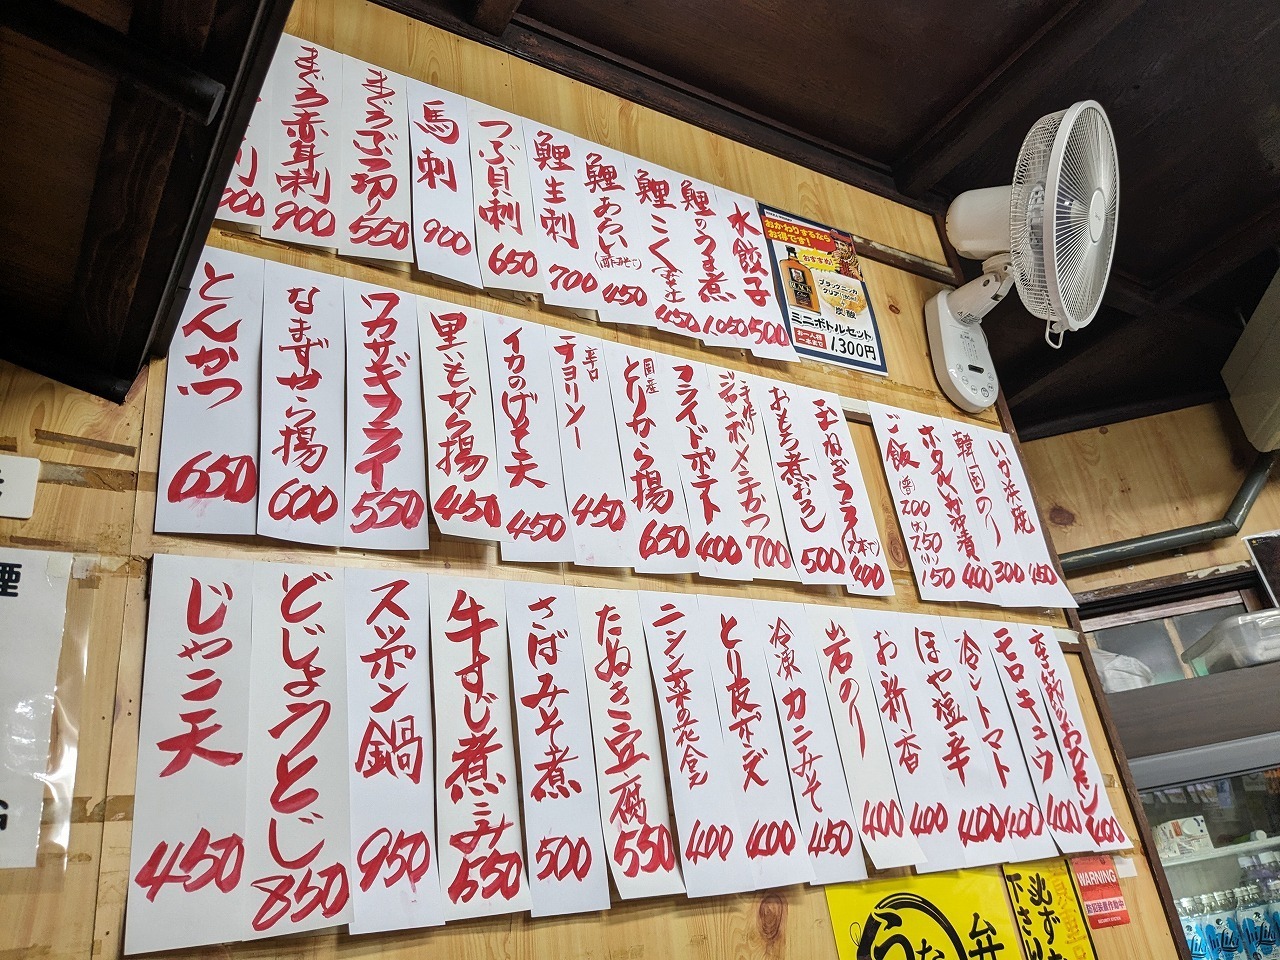 刺
900
まぐろ赤身刺
900
まぐろぶつ切り
550
馬刺
900
つぶ貝刺
650
鯉生刺
700
鯉あらい
(酢みそ)
450
鯉こく
450
鯉のうま煮
1.050
水餃子
500
おかわりするなら
お得です!
おすすめ!
ブラックニッカ
クリア(180ml)
炭酸
ミニボトルセット
お一人様
一本まで
1,300円
とんかつ
650
なまずから揚
600
ワカサギフライ
550
里いもから揚
450
イカのげそ天
450
辛口
チョリソー
450
国産
とりから揚
650
フライドポテト
400
手作り
ジャンボメンチかつ
700
おもち煮おろし
500
玉ねぎフライ
(2本で)
400
ご飯
(普)200
(大)250
(小)150
ホタルいか沖漬
400
韓国のり
300
いか浜焼
450
じゃこ天
450
どじょうとじ
850
スッポン鍋
950
牛すじ煮こみ
550
さばみそ煮
500
たぬき豆腐
550
ニシン菜の花合え
400
とり皮ポン酢
400
冷凍カニみそ
450
岩のり
400
お新香
400
ほや塩辛
400
冷トマト
400
モロキュウ
400
季節のおひたし
400
WARNING
防犯装置作動中
うな
弁
必ず
下さ